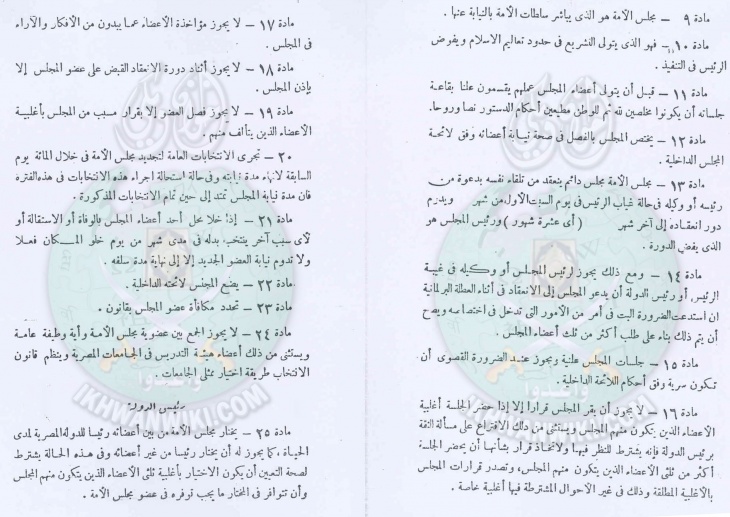 مادة ٩ – مجلس الأمة هو الذى يباشر سلطات الأمة بالنيابة عنها.
مادة ١٠ – فهو الذى يتولى التشريع فى حدود تعاليم الاسلام ويفوض
الرئيس فى التنفيذ.
مادة ١١ – قبل أن يتولى أعضاء المجلس عملهم يقسمون علنا بقاعة
جلساته أن يكونوا مخلصين لله ثم للوطن مطيعين أحكام الدستور نصا وروحا.
مادة ١٢ – يختص المجلس بالفصل فى صحة نيابة أعضائه وفق لائحة
المجلس الداخلية.
مادة ١٣ – مجلس الأمة مجلس دائم ينعقد من تلقاء نفسه بدعوة من
رئيسه أو وكيله فى حالة غياب الرئيس فى يوم السبت الأول من شهر ويدرم
دور انعقاده إلى آخر شهر ( أى عشرة شهور ) ورئيس المجلس هو
الذى يفض الدورة.
مادة ١٤ – ومع ذلك يجوز لرئيس المجلس أو وكيله فى غيبة
الرئيس أو رئيس الدولة أن يدعو المجلس إلى الانعقاد فى أثناء العطلة البرلمانية
ان استدعت الضرورة البت فى أمر من الأمور التى تدخل فى اختصاصه ويصح
أن يتم ذلك بناء على طلب أكثر من ثلث أعضاء المجلس.
مادة ١٥ – جلسات المجلس علنية ويجوز عند الضرورة القصوى أن
تكون سرية وفق أحكام اللائحة الداخلية.
مادة ١٦ – لا يجوز أن يقر المجلس قرارا إلا إذا حضر الجلسة أغلبية
الأعضاء الذين يتكون منهم المجلس ويستثنى من ذلك الاقتراع على مسألة الثقة
برئيس الدولة فإنه يشترط للنظر فيها ولاتخاذ قرار بشأنها أن يحضر الجلسة
أكثر من ثلثى الأعضاء الذين يتكون منهم المجلس، وتصدر قرارات المجلس
بالأغلبية المطلقة وذلك فى غير الأحوال المشترطة فيها أغلبية خاصة.
مادة ١٧ – لا يجوز مؤاخذة الأعضاء عما يبدون من الأفكار والآراء
فى المجلس.
مادة ١٨ – لا يجوز أثناء دورة الانعقاد القبض على عضو المجلس إلا
بإذن المجلس.
مادة ١٩ – لا يجوز فصل العضو إلا بقرار مسبب من المجلس بأغلبية
الأعضاء الذين يتألف منهم.
٢٠ – تجرى الانتخابات العامة لتجديد مجلس الأمة فى خلال المائة يوم
السابقة لانتهاء مدة نيابته وفى حالة استحالة اجراء هذه الانتخابات فى هذه الفترة
فان مدة نيابة المجلس تمتد إلى حين تمام الانتخابات المذكورة.
مادة ٢١ – إذا خلا محل أحد أعضاء المجلس بالوفاة أو الاستقالة أو
لأى سبب آخر ينتخب بدله فى مدى شهر من يوم خلو المكان فعلا
ولا تدوم نيابة العضو الجديد إلا إلى نهاية مدة سلفه.
مادة ٢٢ – يضع المجلس لائحته الداخلية.
مادة ٢٣ – تحدد مكافأة عضو المجلس بقانون.
مادة ٢٤ – لا يجوز الجمع بين عضوية مجلس الأمة وأية وظيفة عامة
ويستثنى من ذلك أعضاء هيئة التدريس فى الجامعات المصرية وينظم قانون
الانتخاب طريقة اختيار ممثلى الجامعات.
رئيس الدولة
مادة ٢٥ – يختار مجلس الأمة من بين أعضائه رئيسا للدولة المصرية لمدى
الحياة، كما يجوز له أن يختار رئيسا من غير أعضائه وفى هذه الحالة يشترط
لصحة التعيين أن يكون الاختيار بأغلبية ثلثى الأعضاء الذين يتكون منهم المجلس
وأن تتوافر فى المختار ما يجب توفره فى عضو مجلس الأمة.
وأعدوا
IKHWANWIKI.COM
وأعدوا
IKHWANWIKI.COM